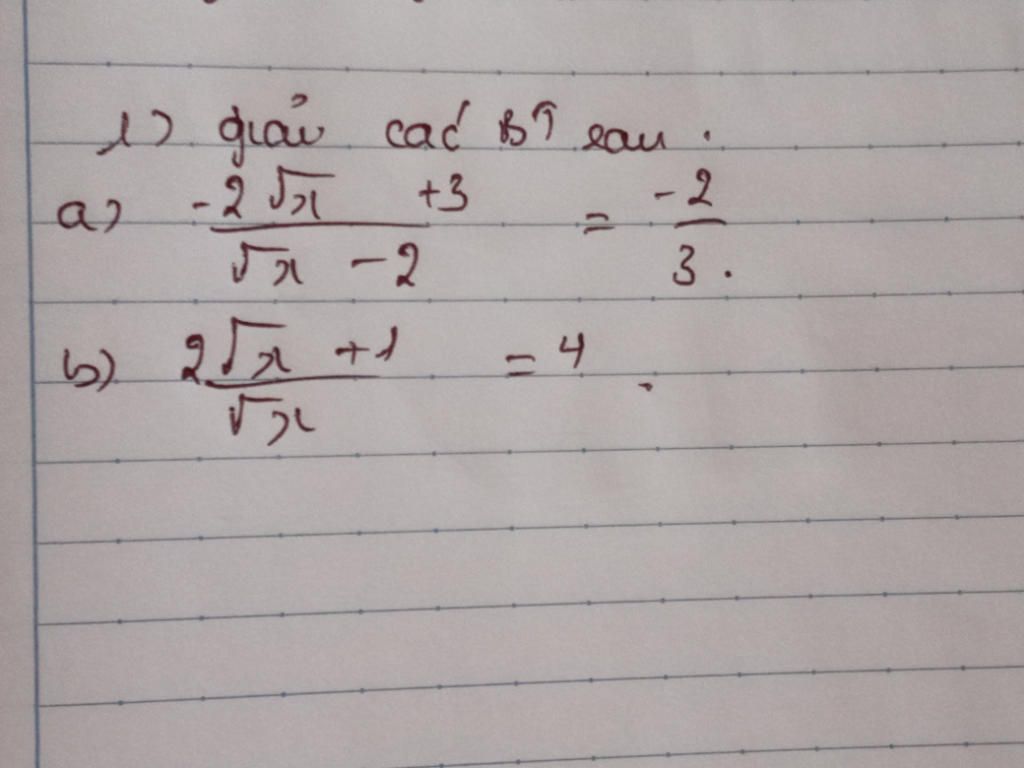 1) giải các BT sau.
a) \frac{-2\sqrt{x} +3}{\sqrt{x} -2} = \frac{-2}{3}.
b) \frac{2\sqrt{x} +1}{\sqrt{x}} = 4.